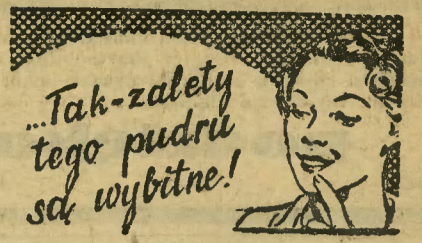 ...Tak-zalety
tego pudru
są wybitne!